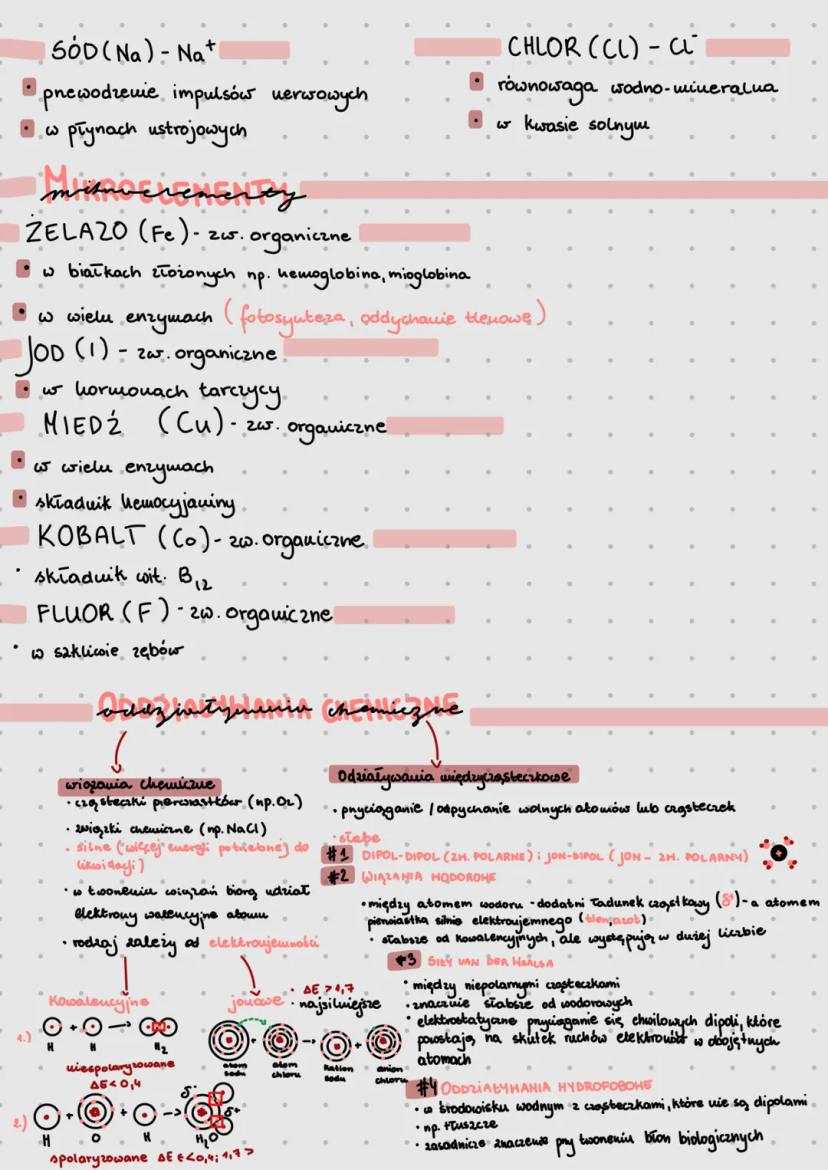 SÓD (Na) - Na⁺
• przewodzenie impulsów nerwowych
• w płynach ustrojowych
CHLOR (Cl) - Cl⁻
• równowaga wodno-mineralna
• w kwasie solnym
MIKROELEMENTY
mikroelementy
ŻELAZO (Fe) - zw. organiczne
• w białkach złożonych np. hemoglobina, mioglobina
• w wielu enzymach (fotosynteza, oddychanie tlenowe)
JOD (I) - zw. organiczne
• w hormonach tarczycy
MIEDŹ (Cu) - zw. organiczne
• w wielu enzymach
• składnik hemocyjaniny
KOBALT (Co) - zw. organiczne
• składnik wit. B₁₂
FLUOR (F) - zw. organiczne
• w szkliwie zębów
ODDZIAŁYWANIA CHEMICZNE
oddziaływania chemiczne
wiązania chemiczne
• cząsteczki pierwiastków (np. O₂)
• związki chemiczne (np. NaCl)
• silne (więcej energii potrzebnej do
likwidacji)
• w tworzeniu wiązań biorą udział
elektrony walencyjne atomu
• rodzaj zależy od elektroujemności
kowalencyjne
1.)
H + H → H₂
niespolaryzowane
ΔE < 0,4
2.)
H + O + H → H₂O
δ⁻
δ+
spolaryzowane ΔE ∈ <0,4; 1,7>
jonowe
• ΔE > 1,7
• najsilniejsze
atom sodu
atom chloru
kation sodu
anion chloru
Odziaływania międzycząsteczkowe
• przyciąganie / odpychanie wolnych atomów lub cząsteczek
• słabe
#1 DIPOL-DIPOL (ZW. POLARNE) i JON-DIPOL (JON - ZW. POLARNY)
#2 WIĄZANIA WODOROWE
• między atomem wodoru - dodatni ładunek cząstkowy (δ⁺) - a atomem
pierwiastka silnie elektroujemnego (tlen, azot)
• słabsze od kowalencyjnych, ale występują w dużej liczbie
#3 SIŁY VAN DER WAALSA
• między niepolarnymi cząsteczkami
• znacznie słabsze od wodorowych
• elektrostatyczne przyciąganie się chwilowych dipoli, które
powstają na skutek ruchów elektronów w obojętnych
atomach
#4 ODDZIAŁYWANIA HYDROFOBOWE
• w środowisku wodnym z cząsteczkami, które nie są dipolami
• np. tłuszcze
• zasadnicze znaczenie przy tworzeniu błon biologicznych